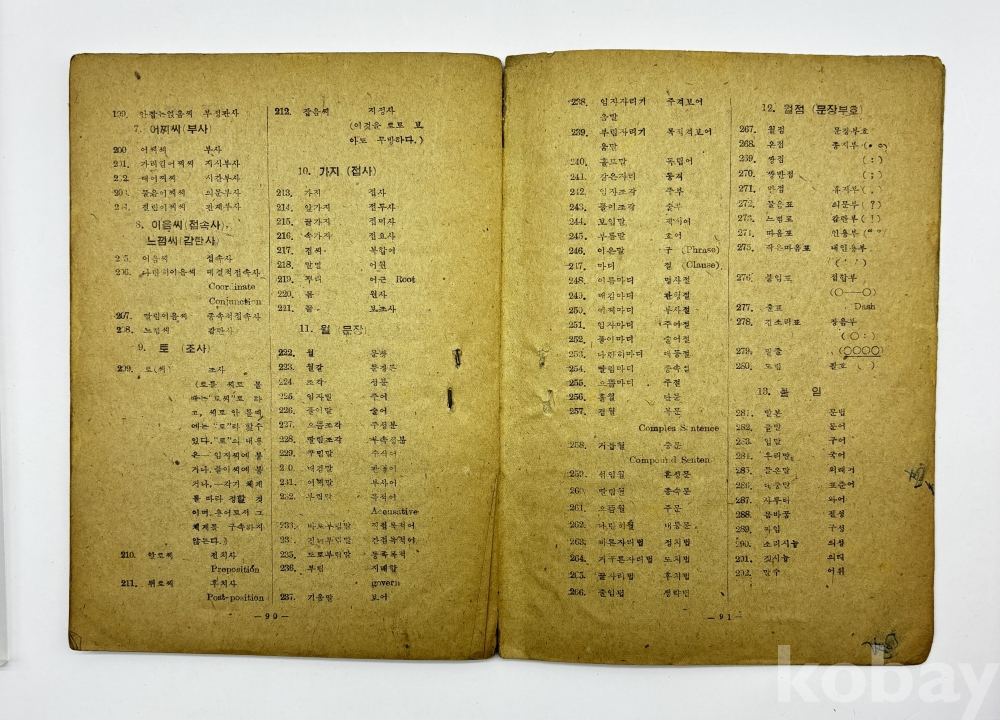 199. 안잡는없음씨 부정판사
7. 어찌씨(부사)
200 어찌씨 부사
201. 가리킴어찌씨 지시부사
202. 때어찌씨 시간부사
203. 물음어찌씨 의문부사
204. 걸림어찌씨 관계부사
8. 이음씨(접속사).
느낌씨(감탄사)
205. 이음씨 접속사
206. 나란히이음씨 대결적접속사
Coordinate
Conjunction
207. 딸림이음씨 종속적접속사
208. 느낌씨 감탄사
9. 토 (조사)
209. 토(씨) 조사
(토를 씨로 볼
때는"토씨"로 하
고, 씨로 안 볼때
에는 "토"라 할수
있다. "토"의 내용
은— 임자씨에 붙
거나, 풀이씨에 붙
거나,—각기 체계
를 따라 정할 것
이며, 용어로서 그
체계를 구속하지
않는다.)
210. 앞토씨 전치사
Preposition
211. 뒤토씨 후치사
Post-position
212. 잡음씨 지정사
(이것을 토로 보
아도 무방하다.)
10. 가지 (접사)
213. 가지 접사
214. 앞가지 접두사
215. 끝가지 접미사
216. 속가지 접요사
217. 겹씨 복합어
218. 말밑 어원
219. 뿌리 어근 Root
220. 몸 원사
221. 꼴 보조사
11. 월 (문장)
222. 월 문장
223. 월갈 문장론
224. 조각 성분
225. 임자말 주어
226. 풀이말 술어
227. 으뜸조각 주성분
228. 딸림조각 부속성분
229. 꾸밈말 수식어
230. 매김말 관형어
231. 어찌말 부사어
232. 부림말 목적어
Accusative
233. 바로부림말 직접목적어
234. 건너부림말 간접목적어
235. 도로부림말 동족목적
236. 부림 지배함
govern
237. 기움말 보어
—90—
238. 임자자리기 주격보어
움말
239. 부림자리기 목적격보어
움말
240. 홀로말 독립어
241. 같은자리 동격
242. 임자조각 주부
243. 풀이조각 술부
244. 보임말 제시어
245. 부름말 호어
246. 이은말 구 (Phrase)
247. 마디 절 (Clause).
248. 이름마디 명사절
249. 매김마디 관형절
250. 어찌마디 부사절
251. 임자마디 주어절
252. 풀이마디 술어절
253. 나란히마디 대등절
254. 딸림마디 종속절
255. 으뜸마디 주절
256. 홑월 단문
257. 겹월 복문
Complex Sentence
258. 거듭월 중문
Compound Senten
259. 섞임월 혼성문
260. 딸림월 종속문
261. 으뜸월 주문
262. 나란히월 대등문
263. 바른자리법 정치법
264. 거꾸른자리법 도치법
265. 끝자리법 후치법
266. 줄임법 생략법
12. 월점 (문장부호)
267. 월점 문장부호
268. 온점 종지부 (. 。)
269. 쌍점 (:)
270. 쌍반점 (;)
271. 반점 휴지부 (,)
272. 물음표 의문부 (?)
273. 느낌표 감탄부 (!)
274. 따옴표 인용부 (“ ”)
275. 작은따옴표 내인용부
(‘ ’)
276. 붙임표 접합부
(○—○)
277. 줄표 Dash
278. 긴소리표 장음부
(○:)
279. 밑줄 (○○○○)
280. 도림 괄호 ( )
13. 붙 임
281. 말본 문법
282. 글말 문어
283. 입말 구어
284. 우리말 국어
285. 들온말 외래어
286. 대중말 표준어
287. 사투리 와어
288. 몸바꿈 전성
289. 짜임 구성
290. 소리시늉 의성
291. 짓시늉 의태
292. 말수 어휘
—91—
kobay